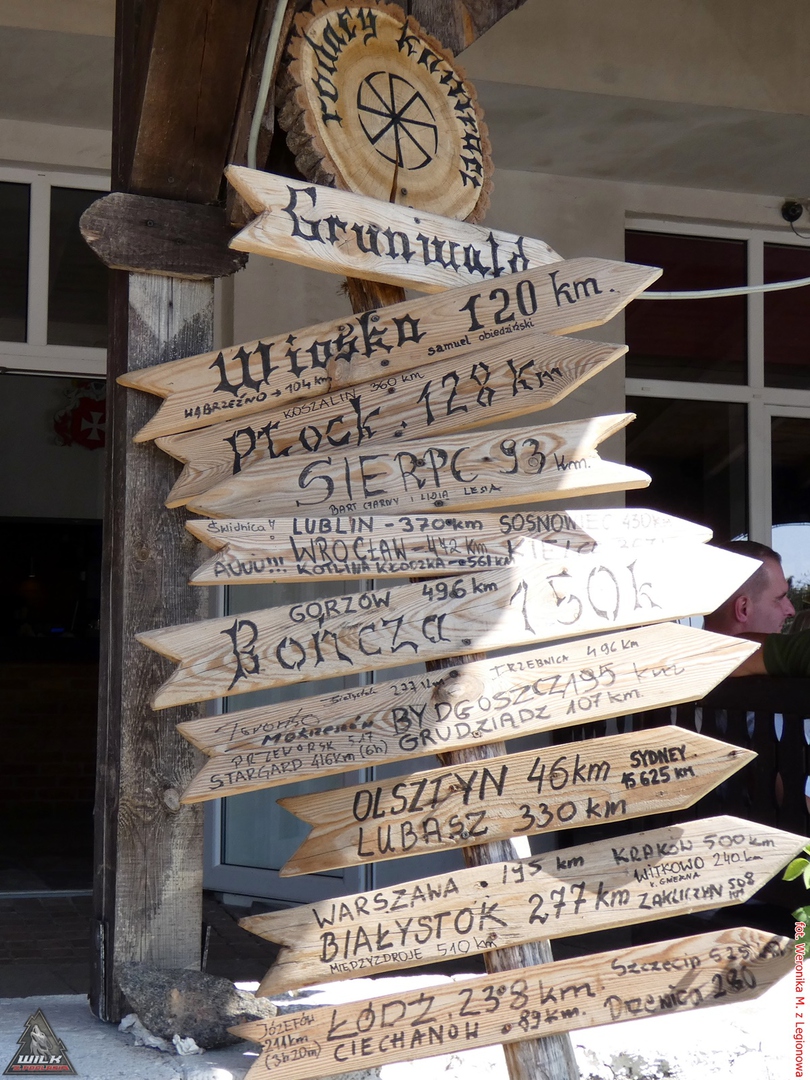 Grunwald
Wioska 120 km.
samuel obiedziński
WĄBRZEŹNO → 104 km
KOSZALIN 360 km
Płock. 128 km
SIERPC - 93 km.
BART CZARNY I LIDIA LESIA
Świdnica!! LUBLIN - 370 km SOSNOWIEC 430 km
AUUU!!! WROCŁAW - 442 km
KOTLINA KŁODZKA - 561 km
GORZÓW 496 km
Bończa. 150k
TRZEBNICA 496 km
Białystok 277 km
Toronto BYDGOSZCZ 195 km
MOKRONIN GRUDZIĄDZ 107 km.
PRZEWORSK 517
STARGARD 416 km (6h)
OLSZTYN 46 km SYDNEY
15 625 km
LUBASZ 330 km
WARSZAWA . 195 km KRAKÓW 500 km
WITKOWO 240 km
K. GNIEZNA
BIAŁYSTOK 277 km ZAKLICZYN 508 km
MIĘDZYZDROJE 510 km
JÓZEFÓW ŁÓDŹ. 238 km. Szczecin 525 km
211 km
(3h 20m) CIECHANÓW . 89 km. 280
WILK
fot. Weronika M. z Legionowa